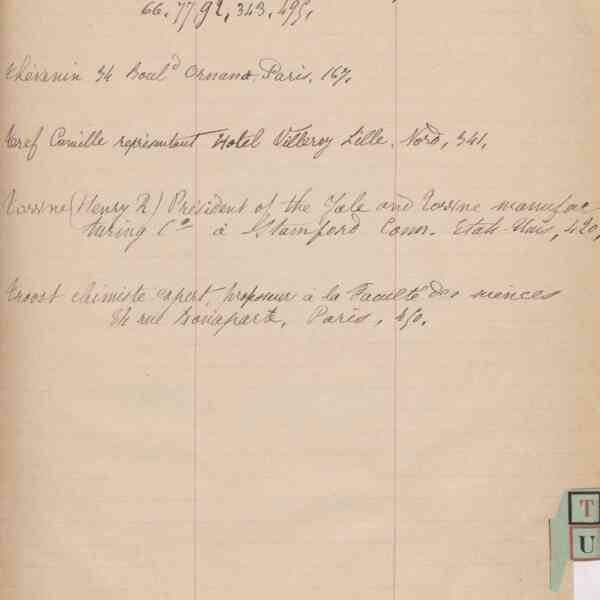 66, 77, 92, 343, 495,
Thévenin 34 Boul^d Ornano, Paris, 167,
Tref Camille représentant Hotel Villeroy Lille, Nord, 341,
Towne (Henry R) Président of the Yale and Towne manufac-
turing C^o à Stamford Conn. Etats-Unis, 420,
Troost chimiste expert, professeur à la Faculté des sciences
84 rue Bonaparte, Paris, 450,
T
U